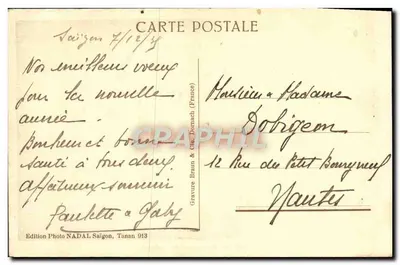 CARTE POSTALE
Saïgon 7/12/35
Nos meilleurs voeux
pour la nouvelle
année.
Bonheur et bonne
santé à tous deux
Affectueux souvenir
Paulette & Gaby
Edition Photo NADAL Saïgon, Tanan 913
Gravure Braun & Cie, Dornach (France)
Monsieur & Madame
Dobigeon
12 Rue du Petit Bourgneuf
Nantes
CPAPHIL